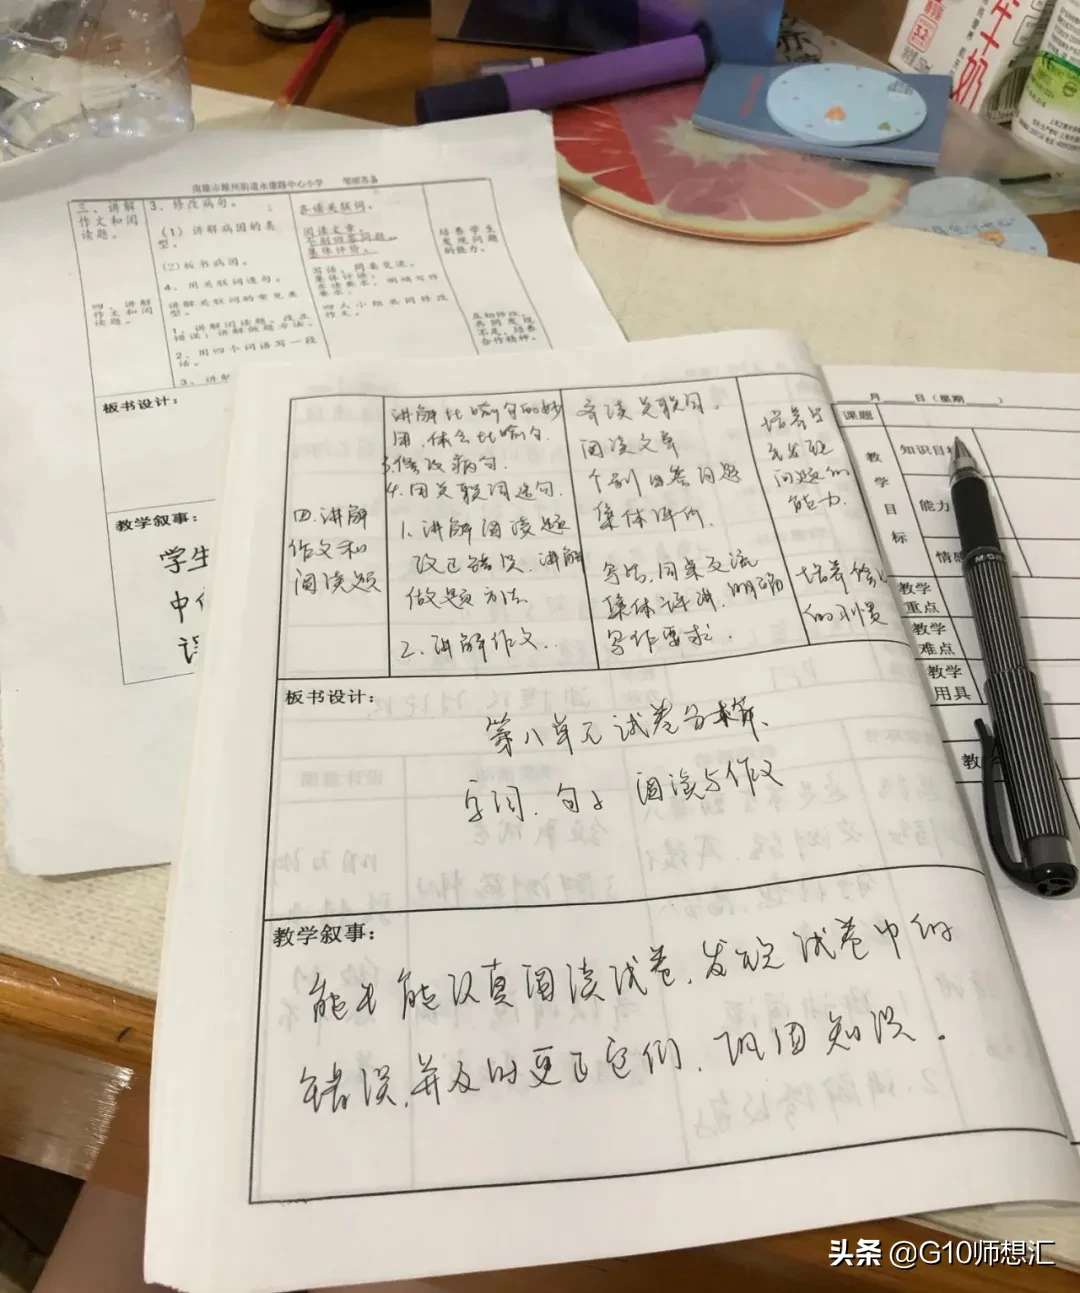 三、讲解作文和阅读题。
3、修改病句。
(1) 讲解病因的类型。
(2)板书病因。
4、用关联词造句。
讲解关联词的常见类型。
齐读关联词。
阅读文章。
个别回答问题。
集体评价。
培养学生发现问题的能力。
四、讲解作文和阅读题。
1、讲解阅读题。改正错误;讲解做题方法。
2、用四个词语写一段话。
写话,同桌交流。
四人小组共同修改作文。
互相修改,共同发现不足,培养合作精神。
板书设计:
教学叙事:
学生
四.讲解
作文和
阅读题
讲解比喻句的妙
用,体会比喻句.
3.修改病句.
4.用关联词造句.
1.讲解阅读题
改正错误.讲解
做题方法
2.讲解作文.
齐读关联句.
阅读文章
个别回答问题
集体评价.
写话,同桌交流
集体评讲,明确
写作要求.
培养学
生发现
问题的
能力.
的习惯
板书设计:
第八单元试卷分析
字词、句子 阅读与作文
教学叙事:
能能认真阅读试卷,发现试卷中的
错误,并及时更正它们,巩固知识。
月 日(星期 )
课题
教学目标
知识目标
能力
情感
教学重点
教学难点
教学用具
牛奶
头条 @G10师想汇